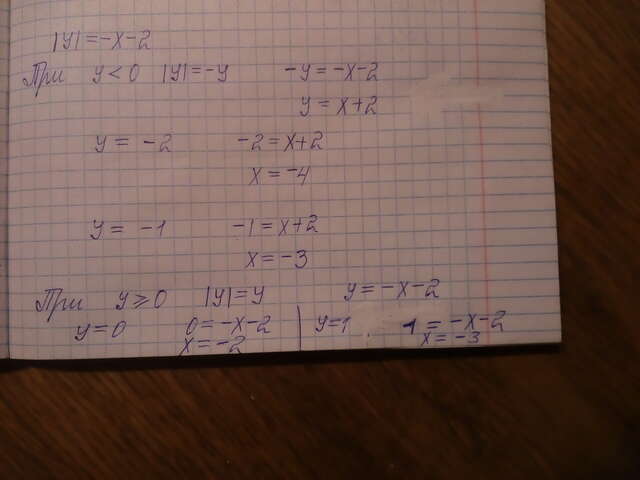 |y|=-x-2
При y<0 |y|=-y -y=-x-2
y=x+2
y=-2 -2=x+2
x=-4
y=-1 -1=x+2
x=-3
При y⩾0 |y|=y y=-x-2
y=0 0=-x-2 | y=1 1=-x-2
x=-2 x=-3